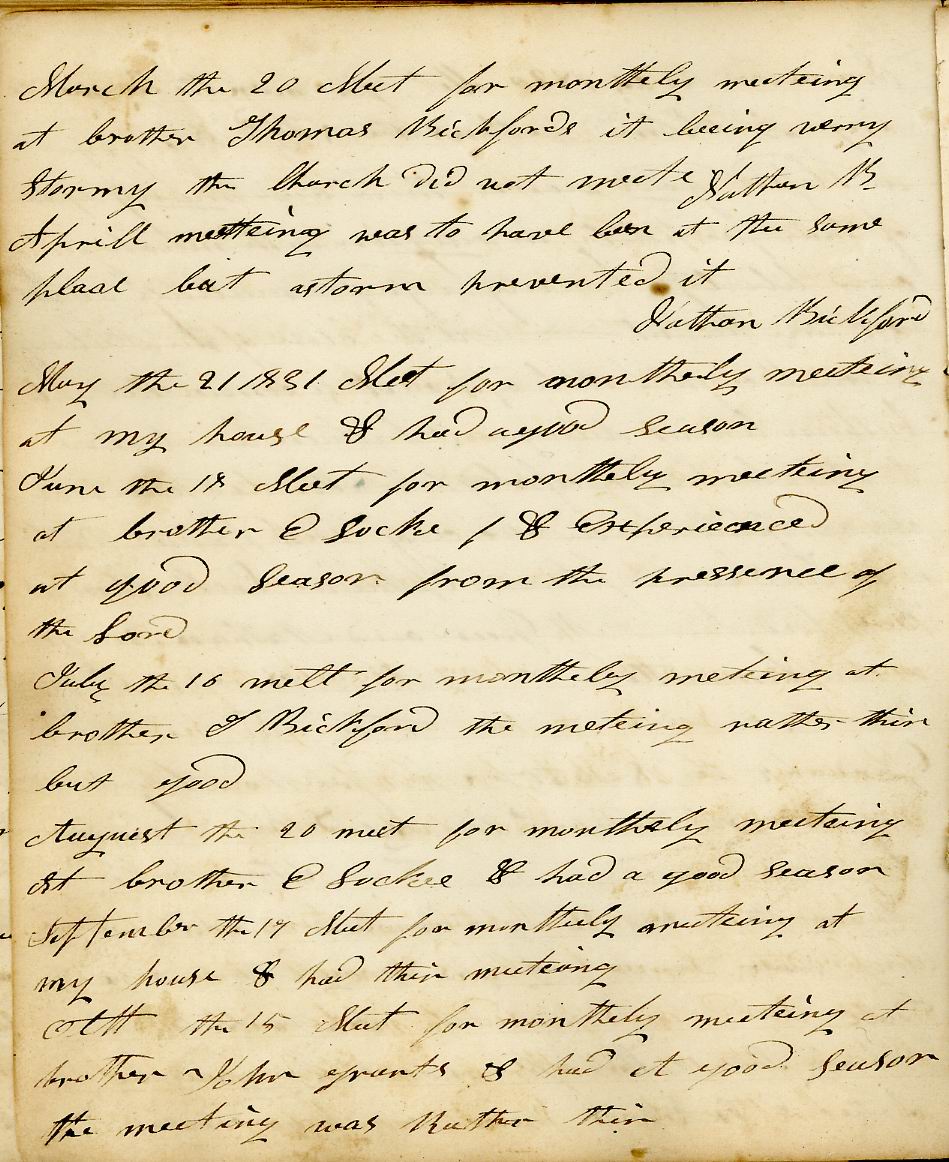 March the 20 Meet for monthely meeteing
at brother Thomas Bickfords it beeing verry
stormy the Church did not meete Nathan B
Aprill meeteing was to have been at the same
plaal but astorm prevented it
Nathan Bickford
May the 21 1831 Meet for monthely meeteing
at my house & had agood season
June the 18 Meet for monthely meeteing
at brother E Locke / & Experieanced
at good season from the pressence of
the Lord
July the 16 mett for monthely meteing at
brother T Bickford the meteing rather thin
but good
Auguest the 20 meet for monthely meeteing
At brother E Lockee & had a good season
September the 17 Meet for monthely meeteing at
my house & had thin meeteing
Octt the 15 Meet for monthely meeteing at
brother John grants & had at good season
the meeteing was Rather thin